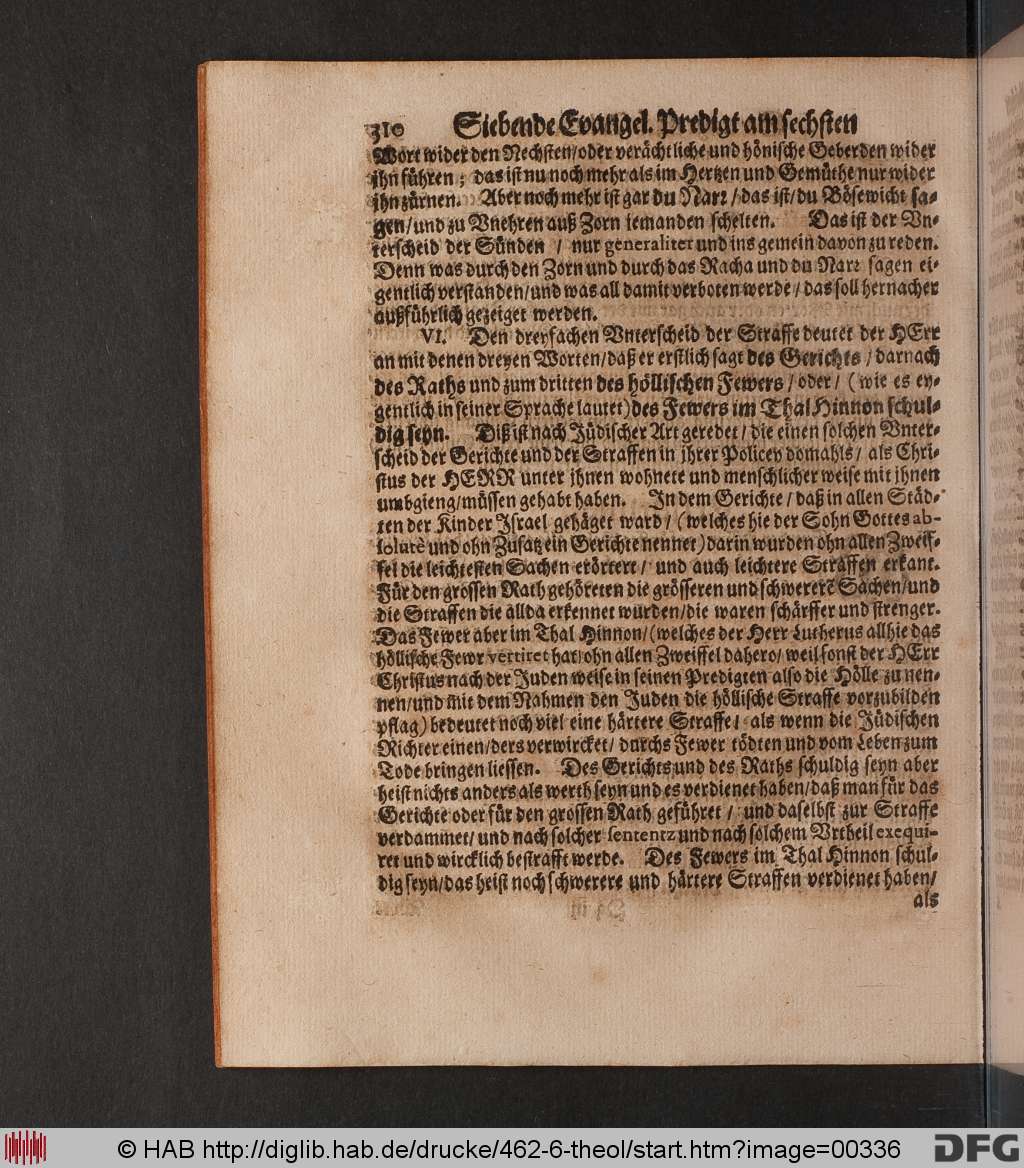 310 Siebende Evangel. Predigt am sechsten
Wort wider den Nechsten/oder verächtliche und hönische Geberden wider
jhn führen; das ist nu noch mehr als im Hertzen und Gemüthe nur wider
jhn zürnen. Aber noch mehr ist gar du Narr/das ist/du Bösewicht sa-
gen/und zu Vnehren auß Zorn iemanden schelten. Das ist der Vn-
terscheid der Sünden / nur generaliter und ins gemein davon zu reden.
Denn was durch den Zorn und durch das Racha und du Narr sagen ei-
gentlich verstanden/und was all damit verboten werde/das soll hernacher
außführlich gezeiget werden.
VI. Den dreyfachen Vnterscheid der Straffe deutet der HErr
an mit denen dreyen Worten/daß er erstlich sagt des Gerichts/darnach
des Raths und zum dritten des höllischen Fewers/oder/(wie es ey-
gentlich in seiner Sprache lautet)des Fewers im Thal Hinnon schul-
dig seyn. Diß ist nach Jüdischer Art geredet/die einen solchen Vnter-
scheid der Gerichte und der Straffen in jhrer Policey domahls/als Chri-
stus der HERR unter jhnen wohnete und menschlicher weise mit jhnen
umbgieng/müssen gehabt haben. In dem Gerichte/daß in allen Städ-
ten der Kinder Israel gehäget ward/(welches hie der Sohn Gottes ab-
solutè und ohn Zusatz ein Gerichte nennet)darin wurden ohn allen Zweif-
fel die leichtesten Sachen erörtert/ und auch leichtere Straffen erkant.
Für den grossen Rath gehöreten die grösseren und schwererē Sachen/und
die Straffen die allda erkennet wurden/die waren schärffer und strenger.
Das Fewer aber im Thal Hinnon/(welches der Herr Lutherus allhie das
höllische Fewr vertiret hat)ohn allen Zweiffel dahero/weil sonst der HErr
Christus nach der Juden weise in seinen Predigten also die Hölle zu nen-
nen/und mit dem Nahmen den Juden die höllische Straffe vorzubilden
pflag)bedeutet noch viel eine härtere Straffe/ als wenn die Jüdischen
Richter einen/ders verwircket/durchs Fewer tödten und vom Leben zum
Tode bringen liessen. Des Gerichts und des Raths schuldig seyn aber
heist nichts anders als werth seyn und es verdienet haben/daß man für das
Gerichte oder für den grossen Rath geführet/ und daselbst zur Straffe
verdammet/und nach solcher sententz und nach solchem Vrtheil exequi-
ret und wircklich bestrafft werde. Des Fewers im Thal Hinnon schul-
dig seyn/das heist noch schwerere und härtere Straffen verdienet haben/
als
© HAB http://diglib.hab.de/drucke/462-6-theol/start.htm?image=00336
DFG